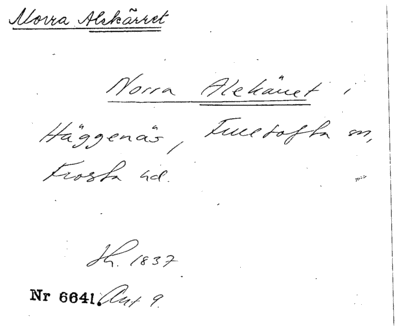 Norra Alekärret
Norra Alekärret i
Häggenäs, Fulltofta sn,
Frosta hd.
Sk. 1837
Nr 6641. Akt 9.